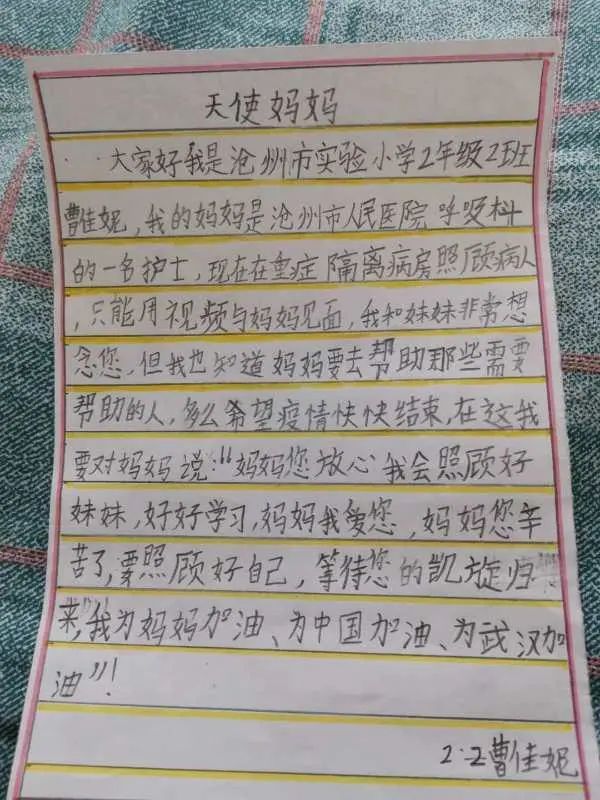 天使妈妈
大家好我是沧州市实验小学2年级2班
曹佳妮,我的妈妈是沧州市人民医院呼吸科
的一名护士,现在在重症隔离病房照顾病人
,只能用视频与妈妈见面,我和妹妹非常想
念您,但我也知道妈妈要去帮助那些需要
帮助的人,多么希望疫情快快结束,在这我
要对妈妈说:“妈妈您放心我会照顾好
妹妹,好好学习,妈妈我爱您,妈妈您辛
苦了,要照顾好自己,等待您的凯旋归
来”,我为妈妈加油、为中国加油、为武汉加
油”!
2.2曹佳妮